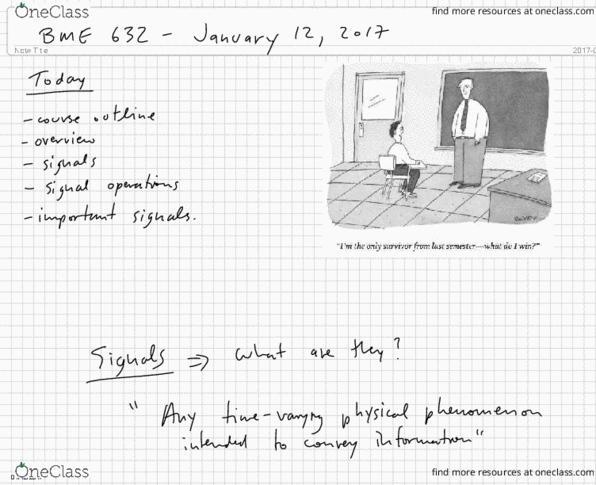 OneClass
find more resources at oneclass.com
BME 632 - January 12, 2017
Note Title
2017-0
Today
- course outline
- overview
- signals
- signal operations
- important signals.
"I'm the only survivor from last semester—what do I win?"
Signals ⇒ What are they?
" Any time-varying physical phenomenon
intended to convey information"
OneClass
find more resources at oneclass.com